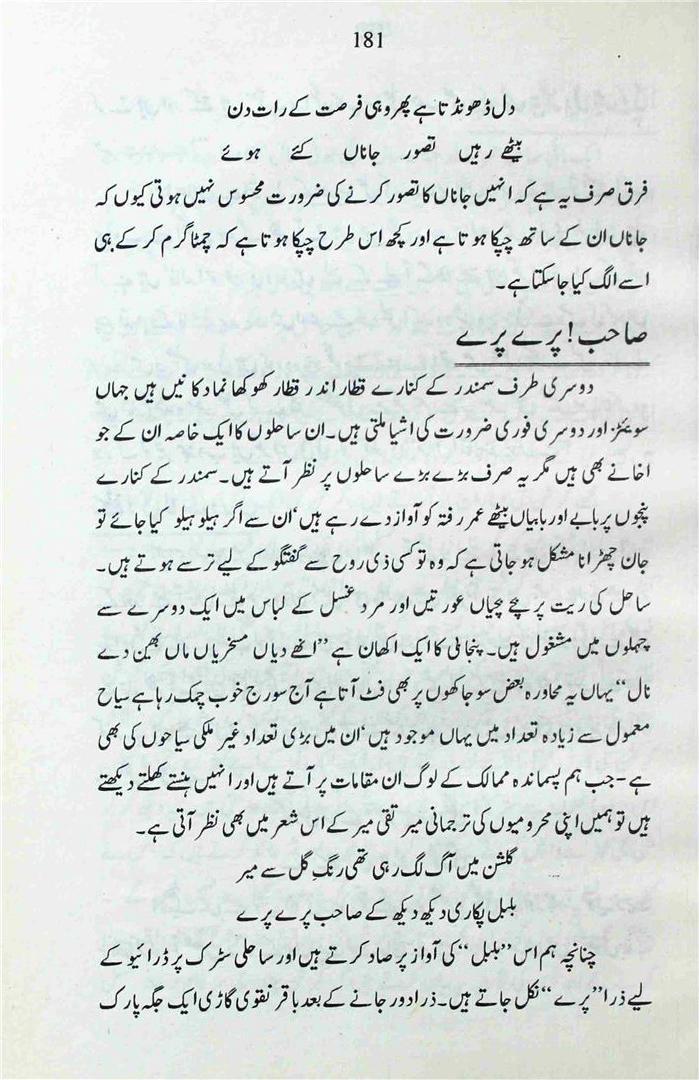 181
دل ڈھونڈتا ہے پھر وہی فرصت کے رات دن
بیٹھے رہیں تصور جاناں کئے ہوئے
فرق صرف یہ ہے کہ انہیں جاناں کا تصور کرنے کی ضرورت محسوس نہیں ہوتی کیوں کہ
جاناں ان کے ساتھ چپکا ہوتا ہے اور کچھ اس طرح چپکا ہوتا ہے کہ چمٹا گرم کر کے ہی
اسے الگ کیا جا سکتا ہے۔
صاحب! پرے پرے
دوسری طرف سمندر کے کنارے قطار اندر قطار کھوکھا نما دکانیں ہیں جہاں
سویٹز اور دوسری فوری ضرورت کی اشیا ملتی ہیں۔ ان ساحلوں کا ایک خاصہ ان کے جو
اخانے بھی ہیں مگر یہ صرف بڑے بڑے ساحلوں پر نظر آتے ہیں۔ سمندر کے کنارے
پنجوں پر بابے اور بابیاں بیٹھے عمر رفتہ کو آواز دے رہے ہیں‘ ان سے اگر ہیلو ہیلو کیا جائے تو
جان چھڑانا مشکل ہو جاتی ہے کہ وہ تو کسی ذی روح سے گفتگو کے لیے ترسے ہوتے ہیں۔
ساحل کی ریت پر بچے بچیاں عورتیں اور مرد غسل کے لباس میں ایک دوسرے سے
چہلوں میں مشغول ہیں۔ پنجابی کا ایک اکھان ہے ’’انھے دیاں مسخریاں ماں بھین دے
نال‘‘ یہاں یہ محاورہ بعض سوجاکھوں پر بھی فٹ آتا ہے آج سورج خوب چمک رہا ہے سیاح
معمول سے زیادہ تعداد میں یہاں موجود ہیں‘ ان میں بڑی تعداد غیر ملکی سیاحوں کی بھی
ہے - جب ہم پسماندہ ممالک کے لوگ ان مقامات پر آتے ہیں اور انہیں ہنستے کھلتے دیکھتے
ہیں تو ہمیں اپنی محرومیوں کی ترجمانی میر تقی میر کے اس شعر میں بھی نظر آتی ہے۔
گلشن میں آگ لگ رہی تھی رنگِ گل سے میر
بلبل پکاری دیکھ دیکھ کے صاحب پرے پرے
چنانچہ ہم اس ’’بلبل‘‘ کی آواز پر صاد کرتے ہیں اور ساحلی سڑک پر ڈرائیو کے
لیے ذرا ’’پرے‘‘ نکل جاتے ہیں۔ ذرا دور جانے کے بعد باقر نقوی گاڑی ایک جگہ پارک